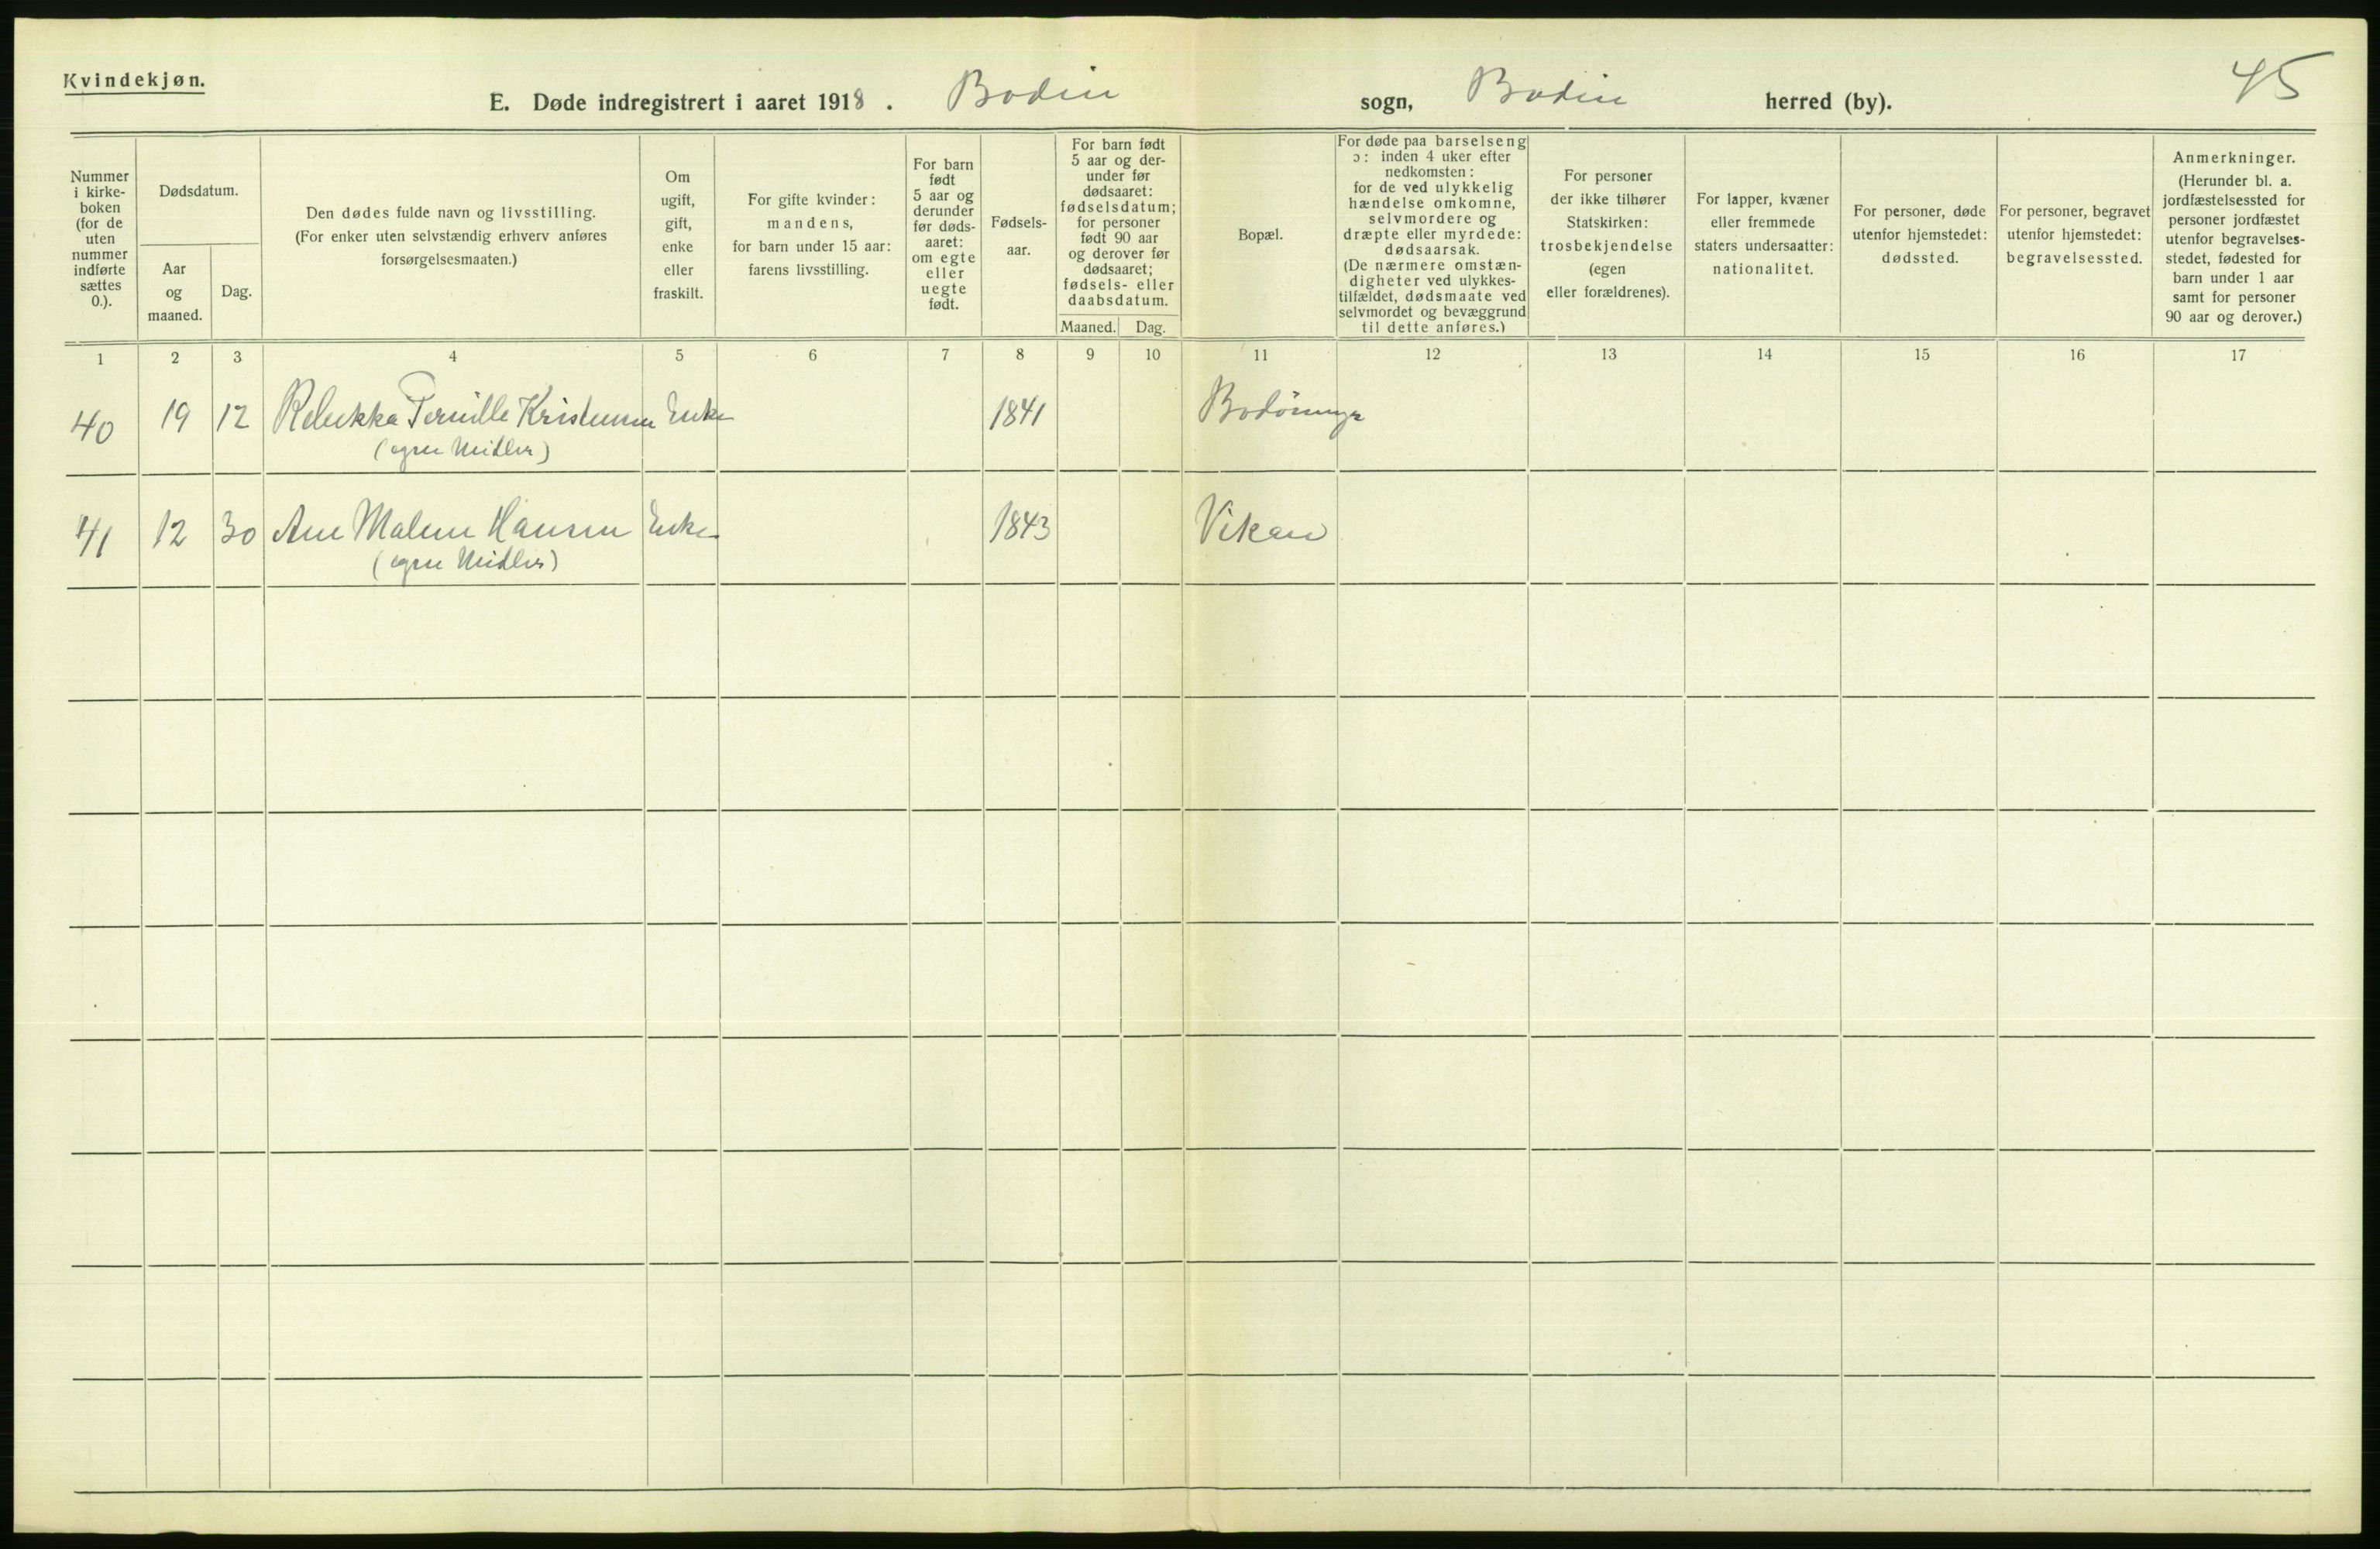 Kvindekjøn.
45
E. Døde indregistrert i aaret 1918 . Bodin sogn, Bodin herred (by).
Nummer
i kirke-
boken
(for de
uten
nummer
indførte
sættes
0.).
Dødsdatum.
Aar
og
maaned.
Dag.
Den dødes fulde navn og livsstilling.
(For enker uten selvstændig erhverv anføres
forsørgelsesmaaten.)
Om
ugift,
gift,
enke
eller
fraskilt.
For gifte kvinder:
mandens,
for barn under 15 aar:
farens livsstilling.
For barn
født
5 aar og
derunder
før døds-
aaret:
om egte
eller
uegte
født.
Fødsels-
aar.
For barn født
5 aar og der-
under før
dødsaaret:
fødselsdatum;
for personer
født 90 aar
og derover før
dødsaaret;
fødsels- eller
daabsdatum.
Maaned. Dag.
Bopæl.
For døde paa barselseng
ɔ: inden 4 uker efter
nedkomsten:
for de ved ulykkelig
hændelse omkomne,
selvmordere og
dræpte eller myrdede:
dødsaarsak.
(De nærmere omstæn-
digheter ved ulykkes-
tilfældet, dødsmaate ved
selvmordet og bevæggrund
til dette anføres.)
For personer
der ikke tilhører
Statskirken:
trosbekjendelse
(egen
eller forældrenes).
For lapper, kvæner
eller fremmede
staters undersaatter:
nationalitet.
For personer, døde
utenfor hjemstedet:
dødssted.
For personer, begravet
utenfor hjemstedet:
begravelsessted.
Anmerkninger.
(Herunder bl. a.
jordfæstelsessted for
personer jordfæstet
utenfor begravelses-
stedet, fødested for
barn under 1 aar
samt for personer
90 aar og derover.)
1 2 3 4 5 6 7 8 9 10 11 12 13 14 15 16 17
40 19 12 Rebekka Pernille Kristensen Enke 1841
(egne Midler)
41 12 30 Ane Malene Hansen Enke 1843 Vikan
(egne Midler)